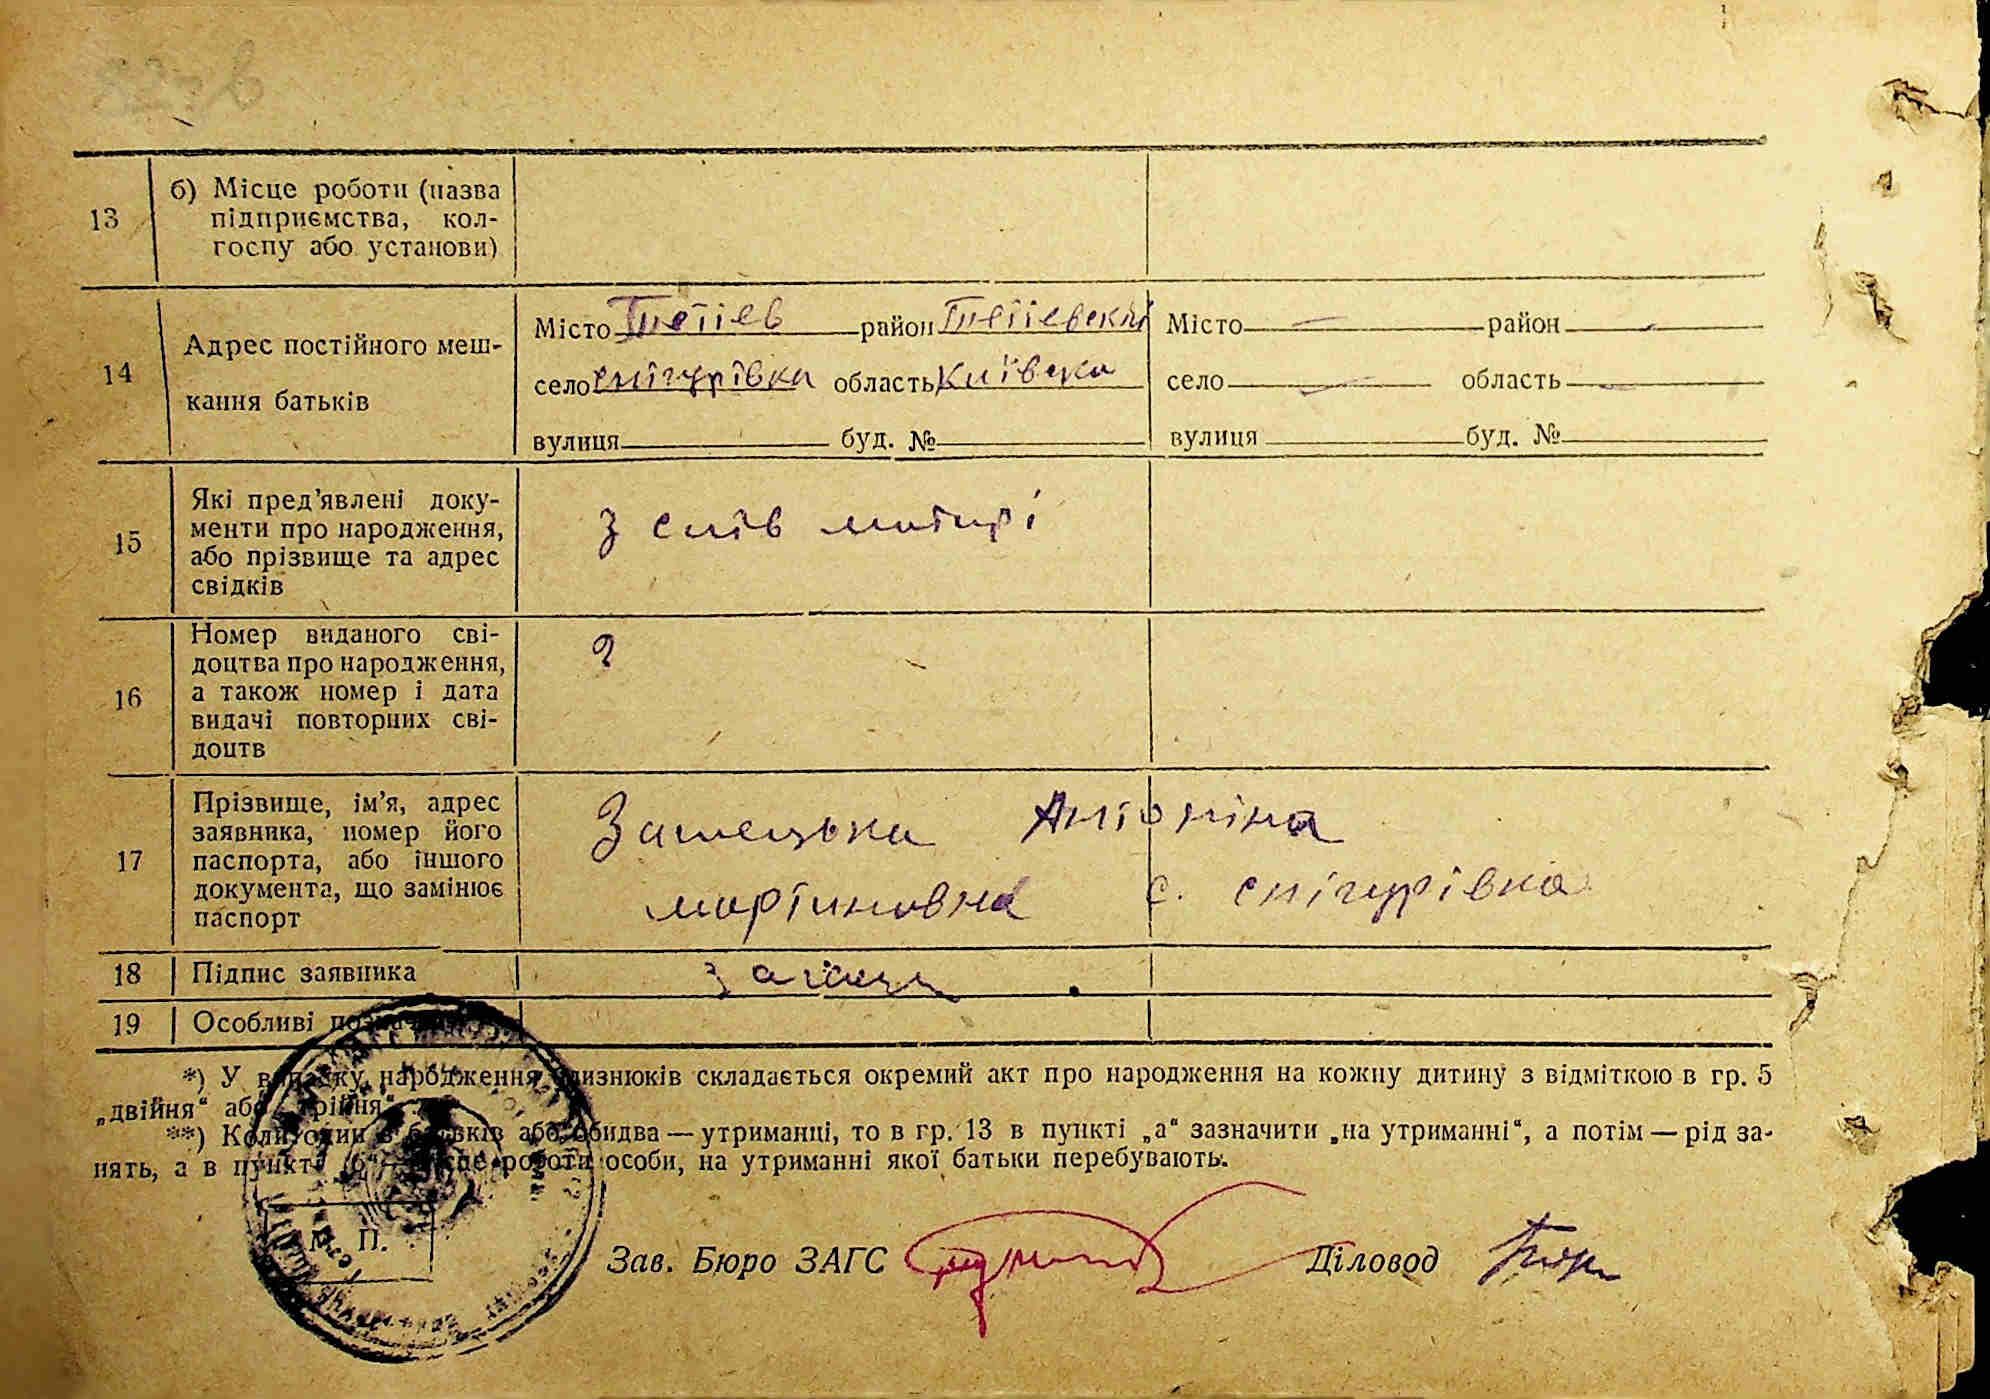 13 б) Місце роботи (назва
підприємства, кол-
госпу або установи)
14 Адрес постійного меш-
кання батьків
Місто Тетіев район Тетіевский
село снігурівка область Київска
вулиця буд. №
Місто — район —
село — область —
вулиця буд. №
15 Які пред’явлені доку-
менти про народження,
або прізвище та адрес
свідків
З слів матирі
16 Номер виданого сві-
доцтва про народження,
а також номер і дата
видачі повторних сві-
доцтв
17 Прізвище, ім’я, адрес
заявника, номер його
паспорта, або іншого
документа, що замінює
паспорт
Антоніна
мартиновна с. снігурівка
18 Підпис заявника
19 Особливі позначки
*) У випадку народження близнюків складається окремий акт про народження на кожну дитину з відміткою в гр. 5
„двійня“ або „трійня“.
**) Коли один з батьків або обидва — утриманці, то в гр. 13 в пункті „а“ зазначити „на утриманні“, а потім — рід за-
нять, а в пункті „б“ — місце роботи особи, на утриманні якої батьки перебувають.
М. П.
Зав. Бюро ЗАГС Діловод